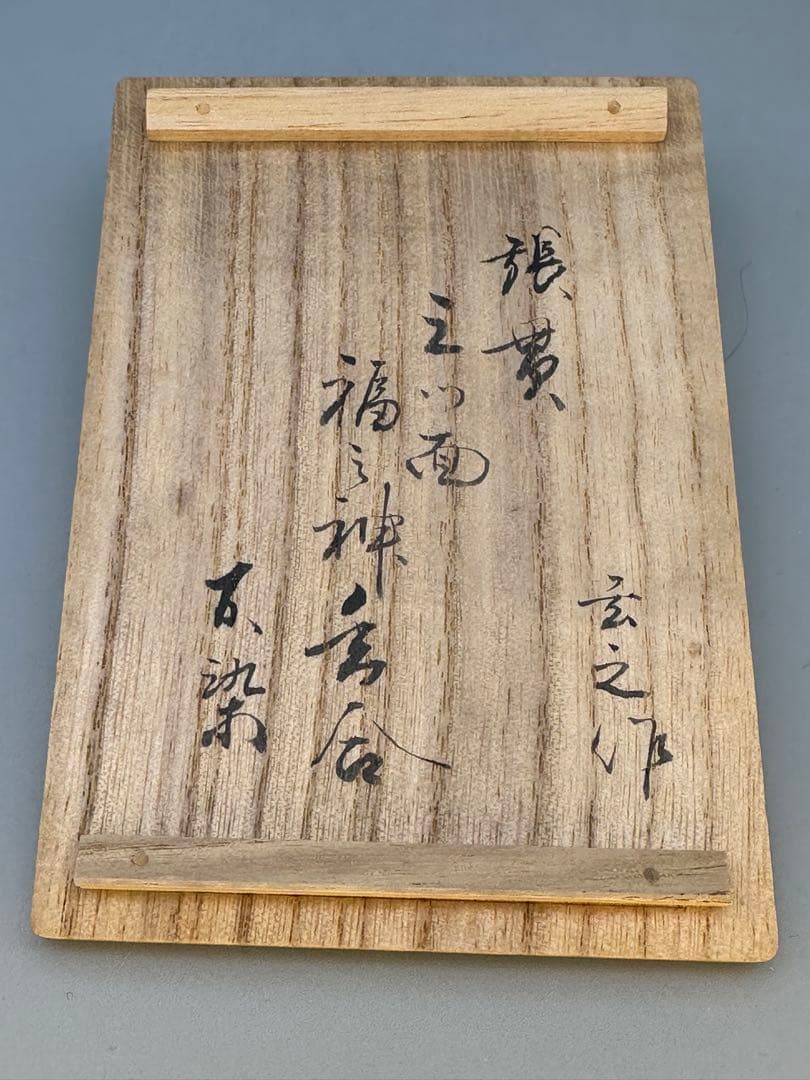 玄之作
張貫
三ツ面
福之神香合
百染